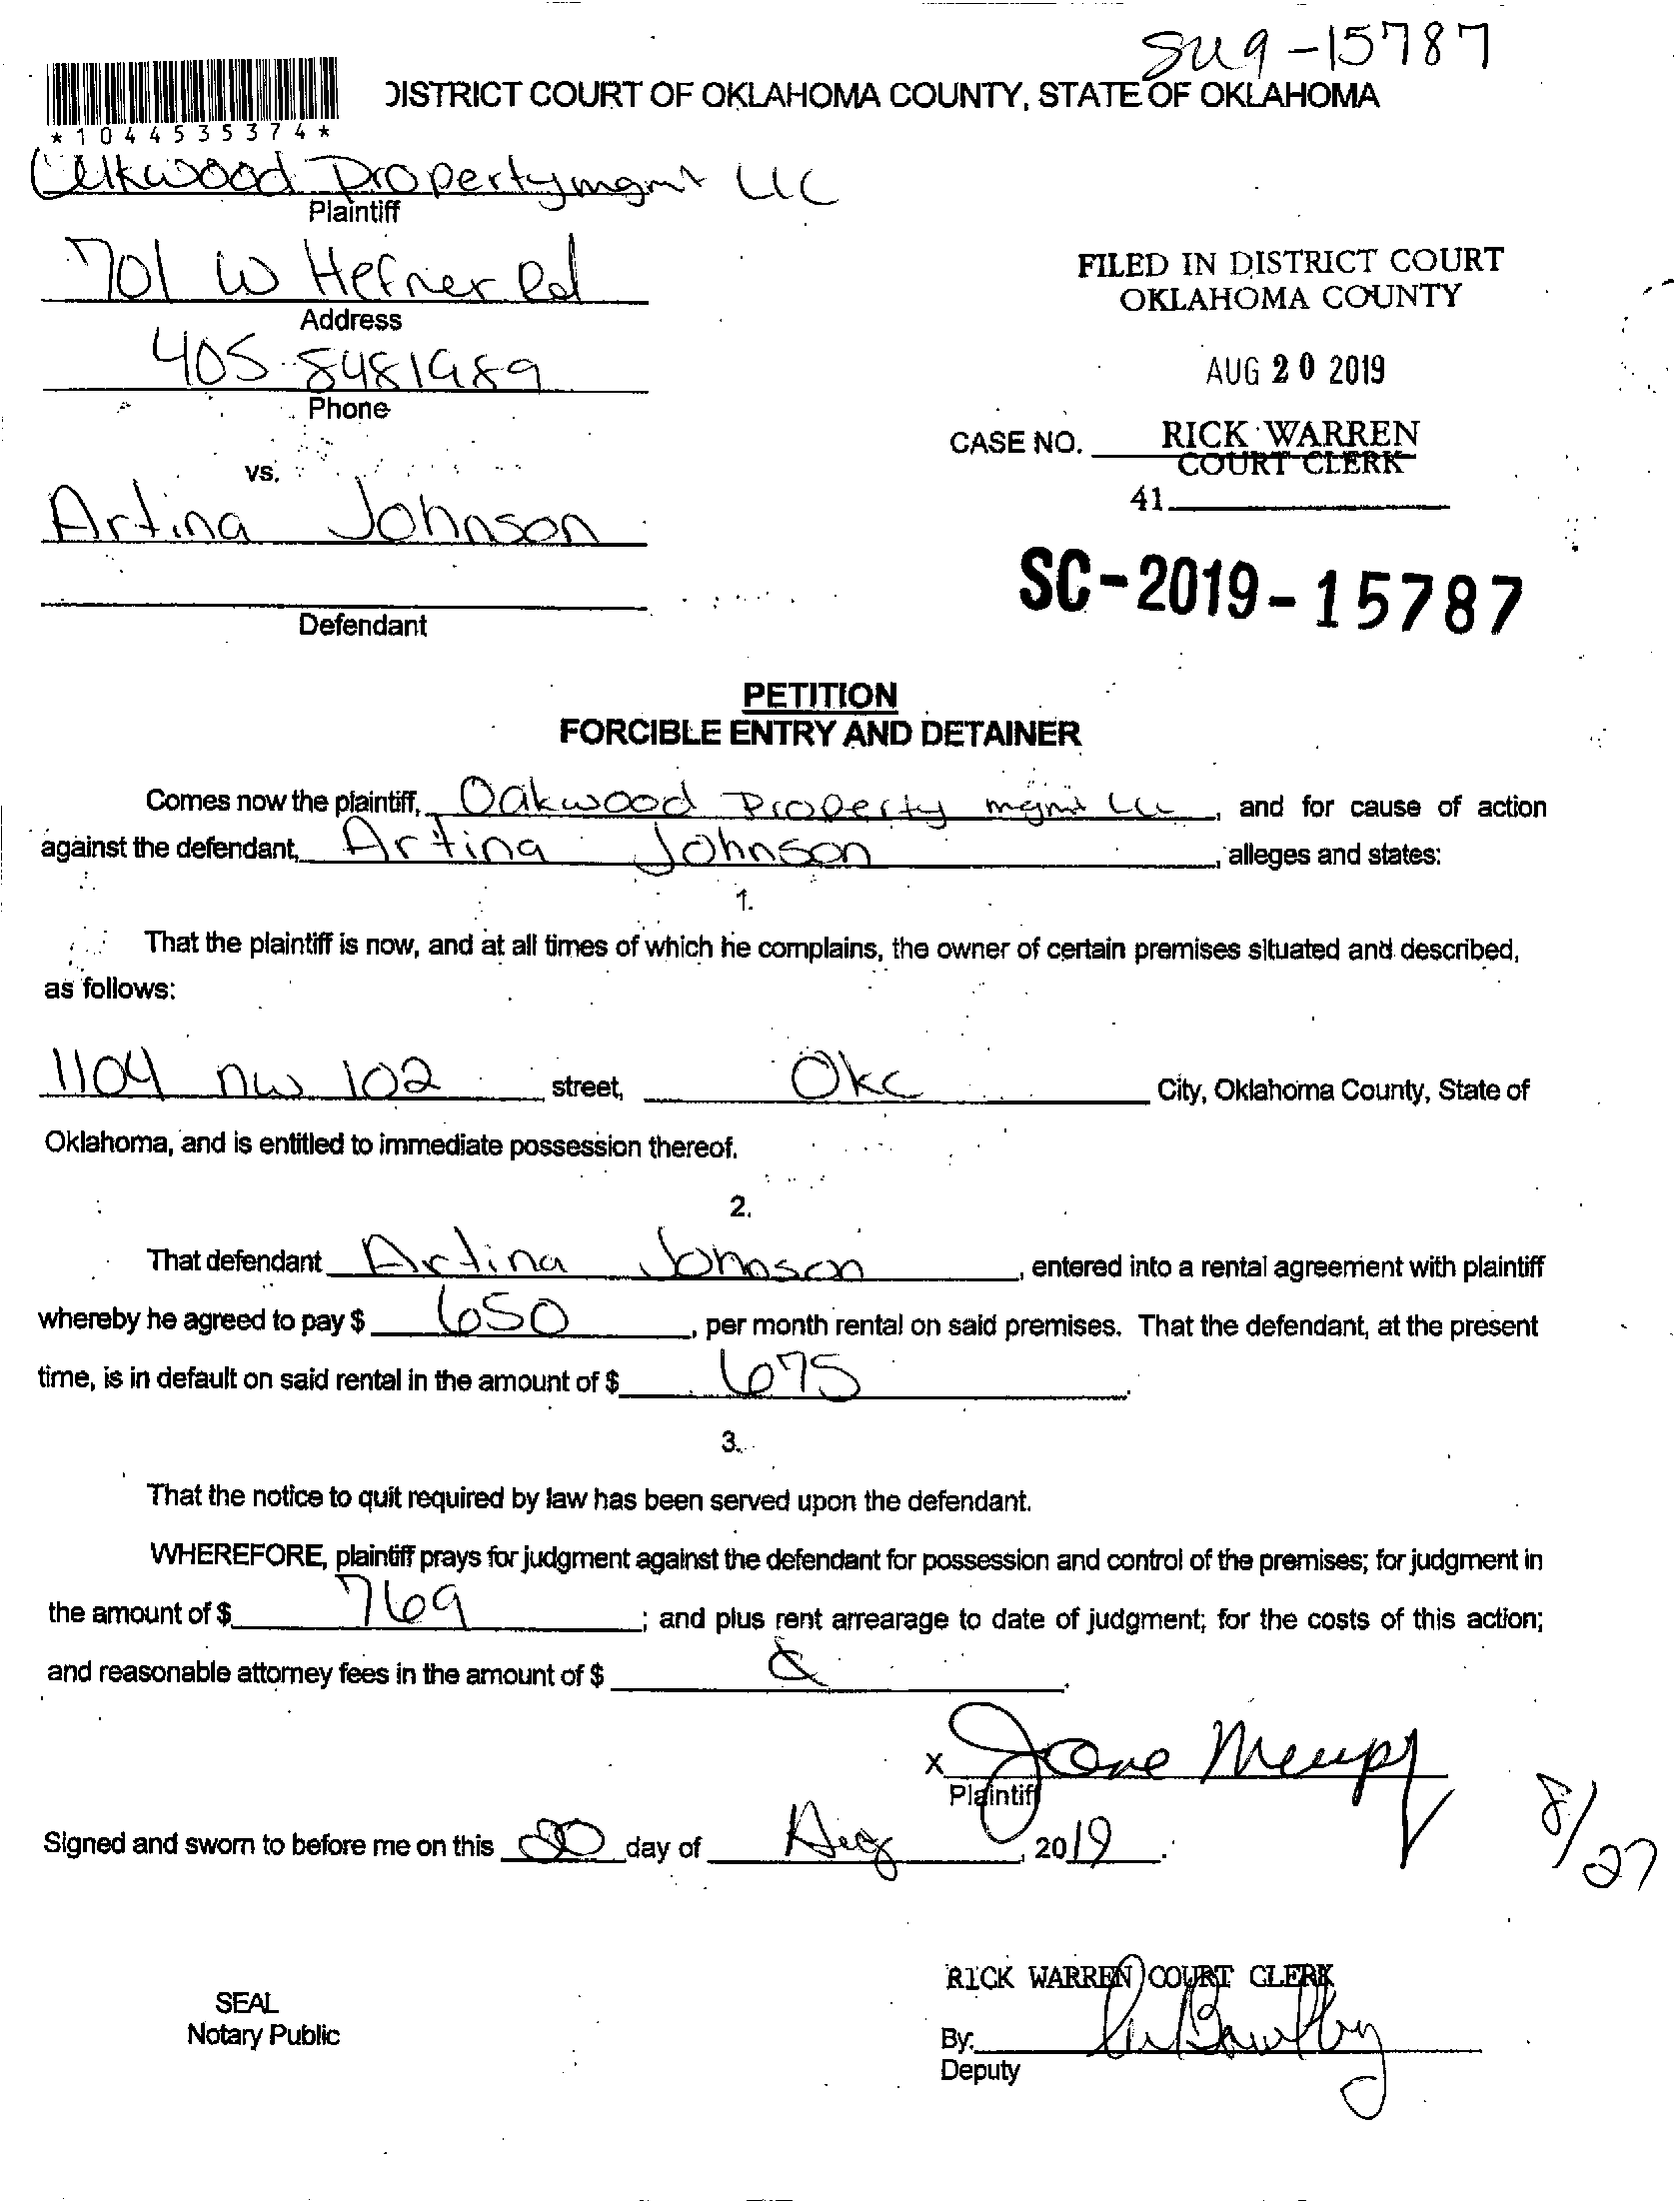 SC19-15787
DISTRICT COURT OF OKLAHOMA COUNTY, STATE OF OKLAHOMA
*1044535374*
Oakwood Property mgmt LLC
Plaintiff
701 W Hefner Rd
Address
FILED IN DISTRICT COURT
OKLAHOMA COUNTY
405-8481989
Phone
AUG 20 2019
CASE NO.
RICK WARREN
COURT CLERK
vs.
41
Artina Johnson
SC-2019-15787
Defendant
PETITION
FORCIBLE ENTRY AND DETAINER
Comes now the plaintiff, Oakwood Property mgmt LLC, and for cause of action
against the defendant, Artina Johnson, alleges and states:
1.
That the plaintiff is now, and at all times of which he complains, the owner of certain premises situated and described,
as follows:
1104 nw 102 street, Okc City, Oklahoma County, State of
Oklahoma, and is entitled to immediate possession thereof.
2.
That defendant Artina Johnson, entered into a rental agreement with plaintiff
whereby he agreed to pay $ 650, per month rental on said premises. That the defendant, at the present
time, is in default on said rental in the amount of $ 675.
3.
That the notice to quit required by law has been served upon the defendant.
WHEREFORE, plaintiff prays for judgment against the defendant for possession and control of the premises; for judgment in
the amount of $ 769; and plus rent arrearage to date of judgment; for the costs of this action;
and reasonable attorney fees in the amount of $
X
Plaintiff
8/27
Signed and sworn to before me on this 20 day of Aug, 2019.
RICK WARREN COURT CLERK
SEAL
Notary Public
By:
Deputy